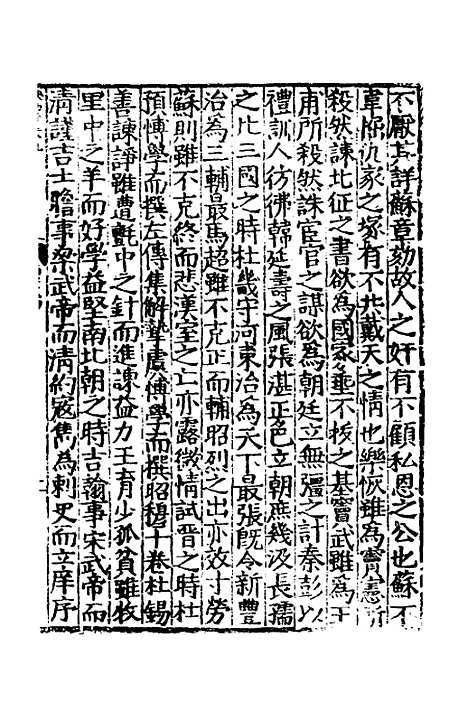 不厭其詳蘇章劾故人之奸有不顧私恩之公也蘇不
韋掘仇家之塚有不共戴天之情也樂恢雖為竇憲所
殺然諫北征之書欲為國家垂不拔之基竇武雖為王
甫所殺然誅宦官之謀欲為朝廷立無彊之計秦彭以
禮訓人彷彿韓延壽之風張湛正色立朝庶幾汲長孺
之比三國之時杜畿守河東治為天下最張既令新豐
治為三輔最馬超雖不克正而輔昭烈之出亦效寸勞
蘇則雖不克終而悲漢室之亡亦露微情試晋之時杜
預博學而撰左傳集解摯虞博學而撰昭穆十卷杜錫
善諫諍雖遭氈中之針而進諫益力王育少孤貧雖牧
里中之羊而好學益堅南北朝之時吉翰事宋武帝而
清謹吉士瞻事梁武帝而清約寇雋為刺史而立庠序